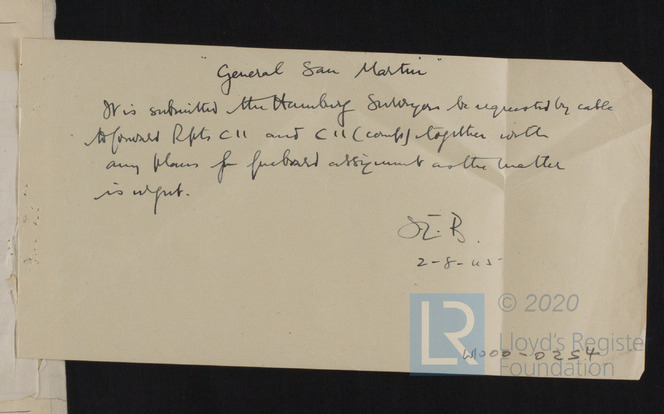 "General San Martin"
It is submitted the Hamburg Surveyors be requested by cable
to forward Rpts C11 and C11 (comp) together with
any plans for freeboard assignment as the matter
is urgent.
2-8-
LR
© 2020
Lloyd's Register
Foundation
W000-0254